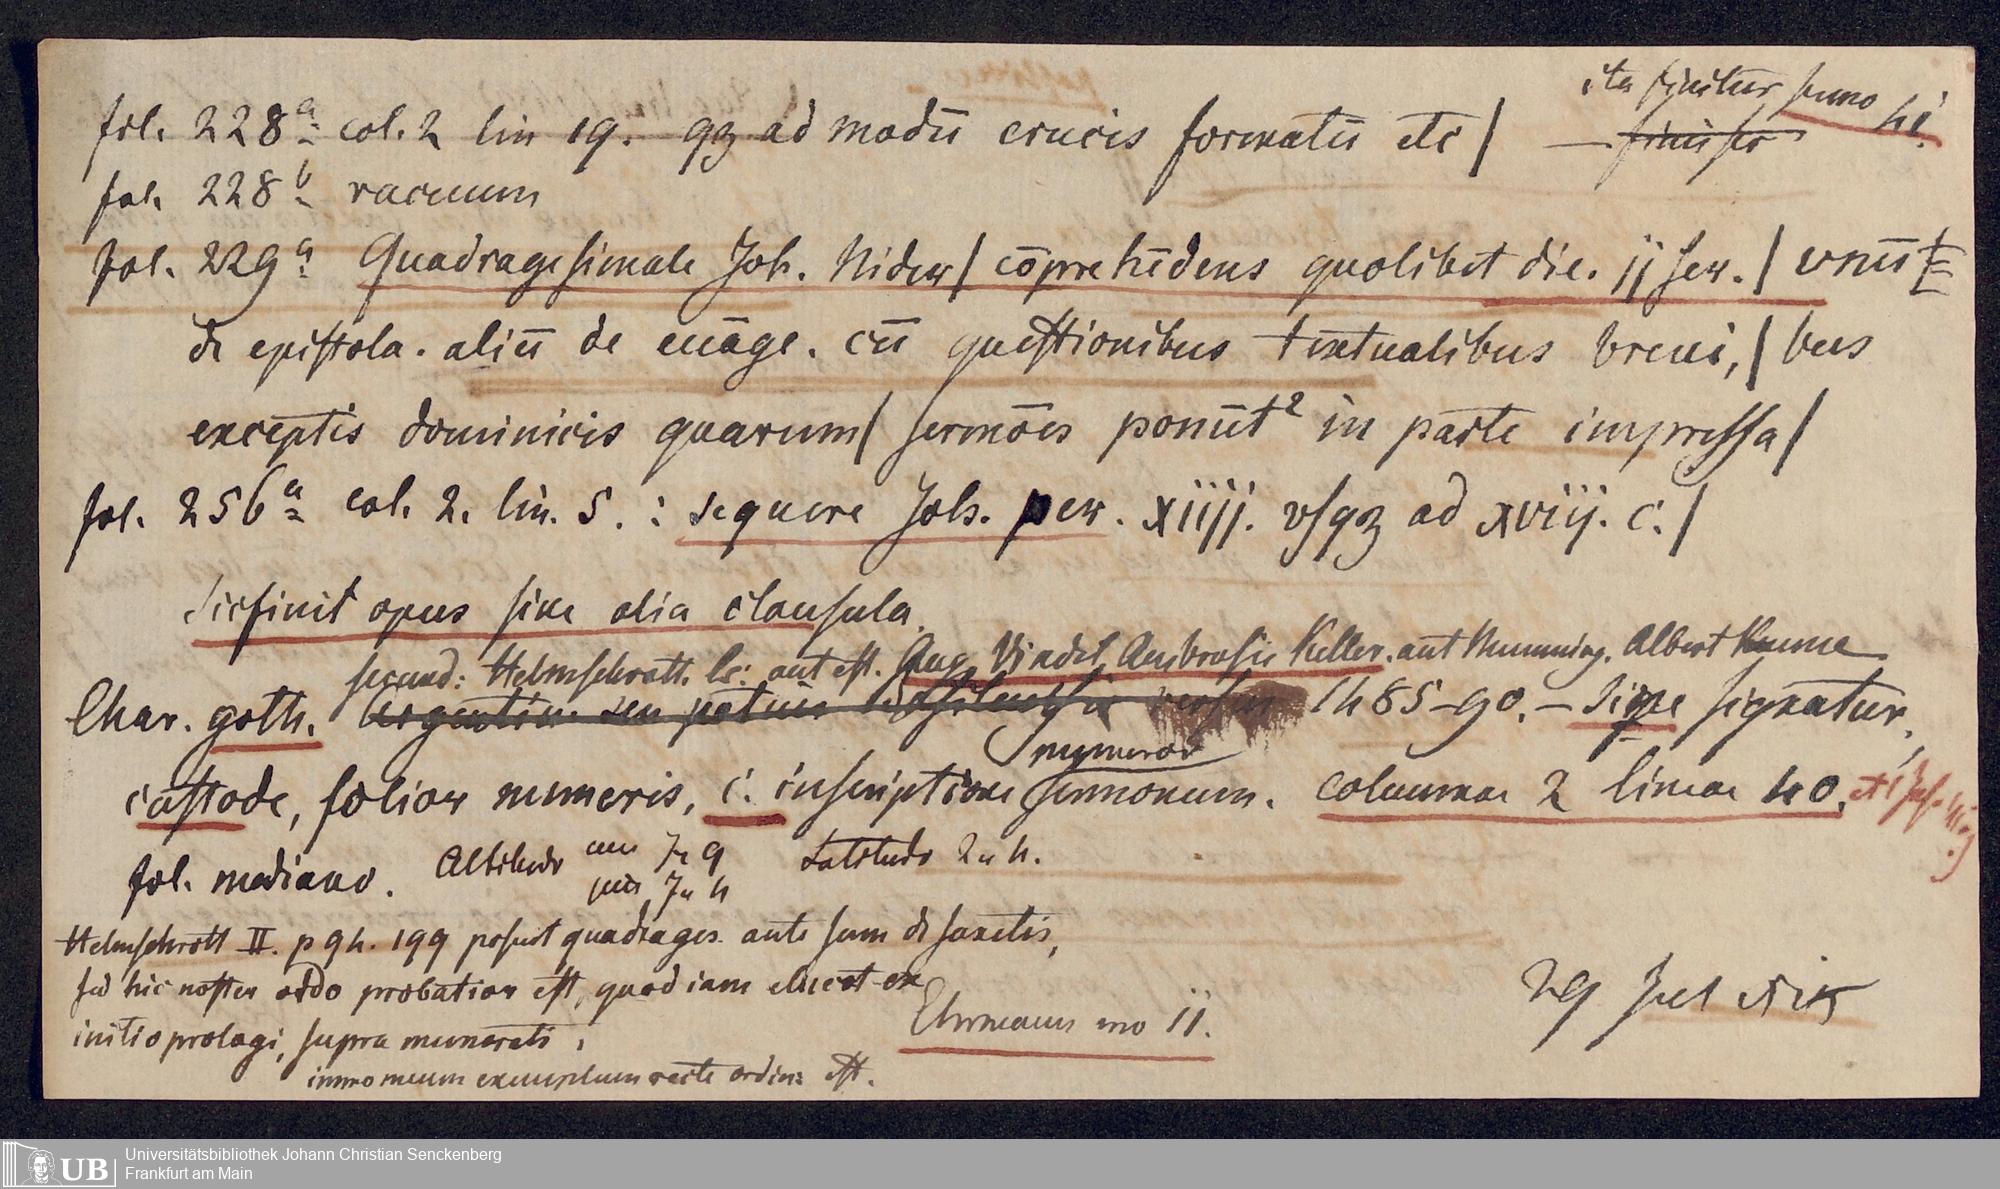 ita finitur sermo hi.
fol. 228ª col. 2 lin 19. qz ad modū crucis formatū etc / — finis ser
fol. 228b vacuum
fol. 229ª Quadragesimale Joh. Nider / cōprehēdens quolibet die. ij ser. / vnū
de epistola. aliū de euāge. cū questionibus textualibus breui, / bus
exceptis dominicis quarum / sermōes ponūt² in parte impressa /
fol. 256ª col. 2. lin. 5. : sequere Joh. per. xiiij. vsqz ad xviij. c. /
Sic finit opus sine alia clausula.
secund: Helmschrott. lc: aut est. Aug. Vindel. Ambrosii Keller. aut Memming. Albert Kunne
Char. goth. 1485-90. – Sine signatur,
numeror
custode, folior numeris, c. inscriptione sermonum. columnae 2 lineae 40.
fol. mediano. Altitudo 7" 9 Latitudo 2" 4.
7" 4
Helmschrott II. p 94. 199 posuit quadrages. ante serm de sanctis,
sed hic noster ordo probatior est, quod iam elucet ex
initio prologi, supra numerati,
immo meum exemplum recte ordin: est.
Ehrmann no 11.
29 Jul
Universitätsbibliothek Johann Christian Senckenberg
Frankfurt am Main
UB